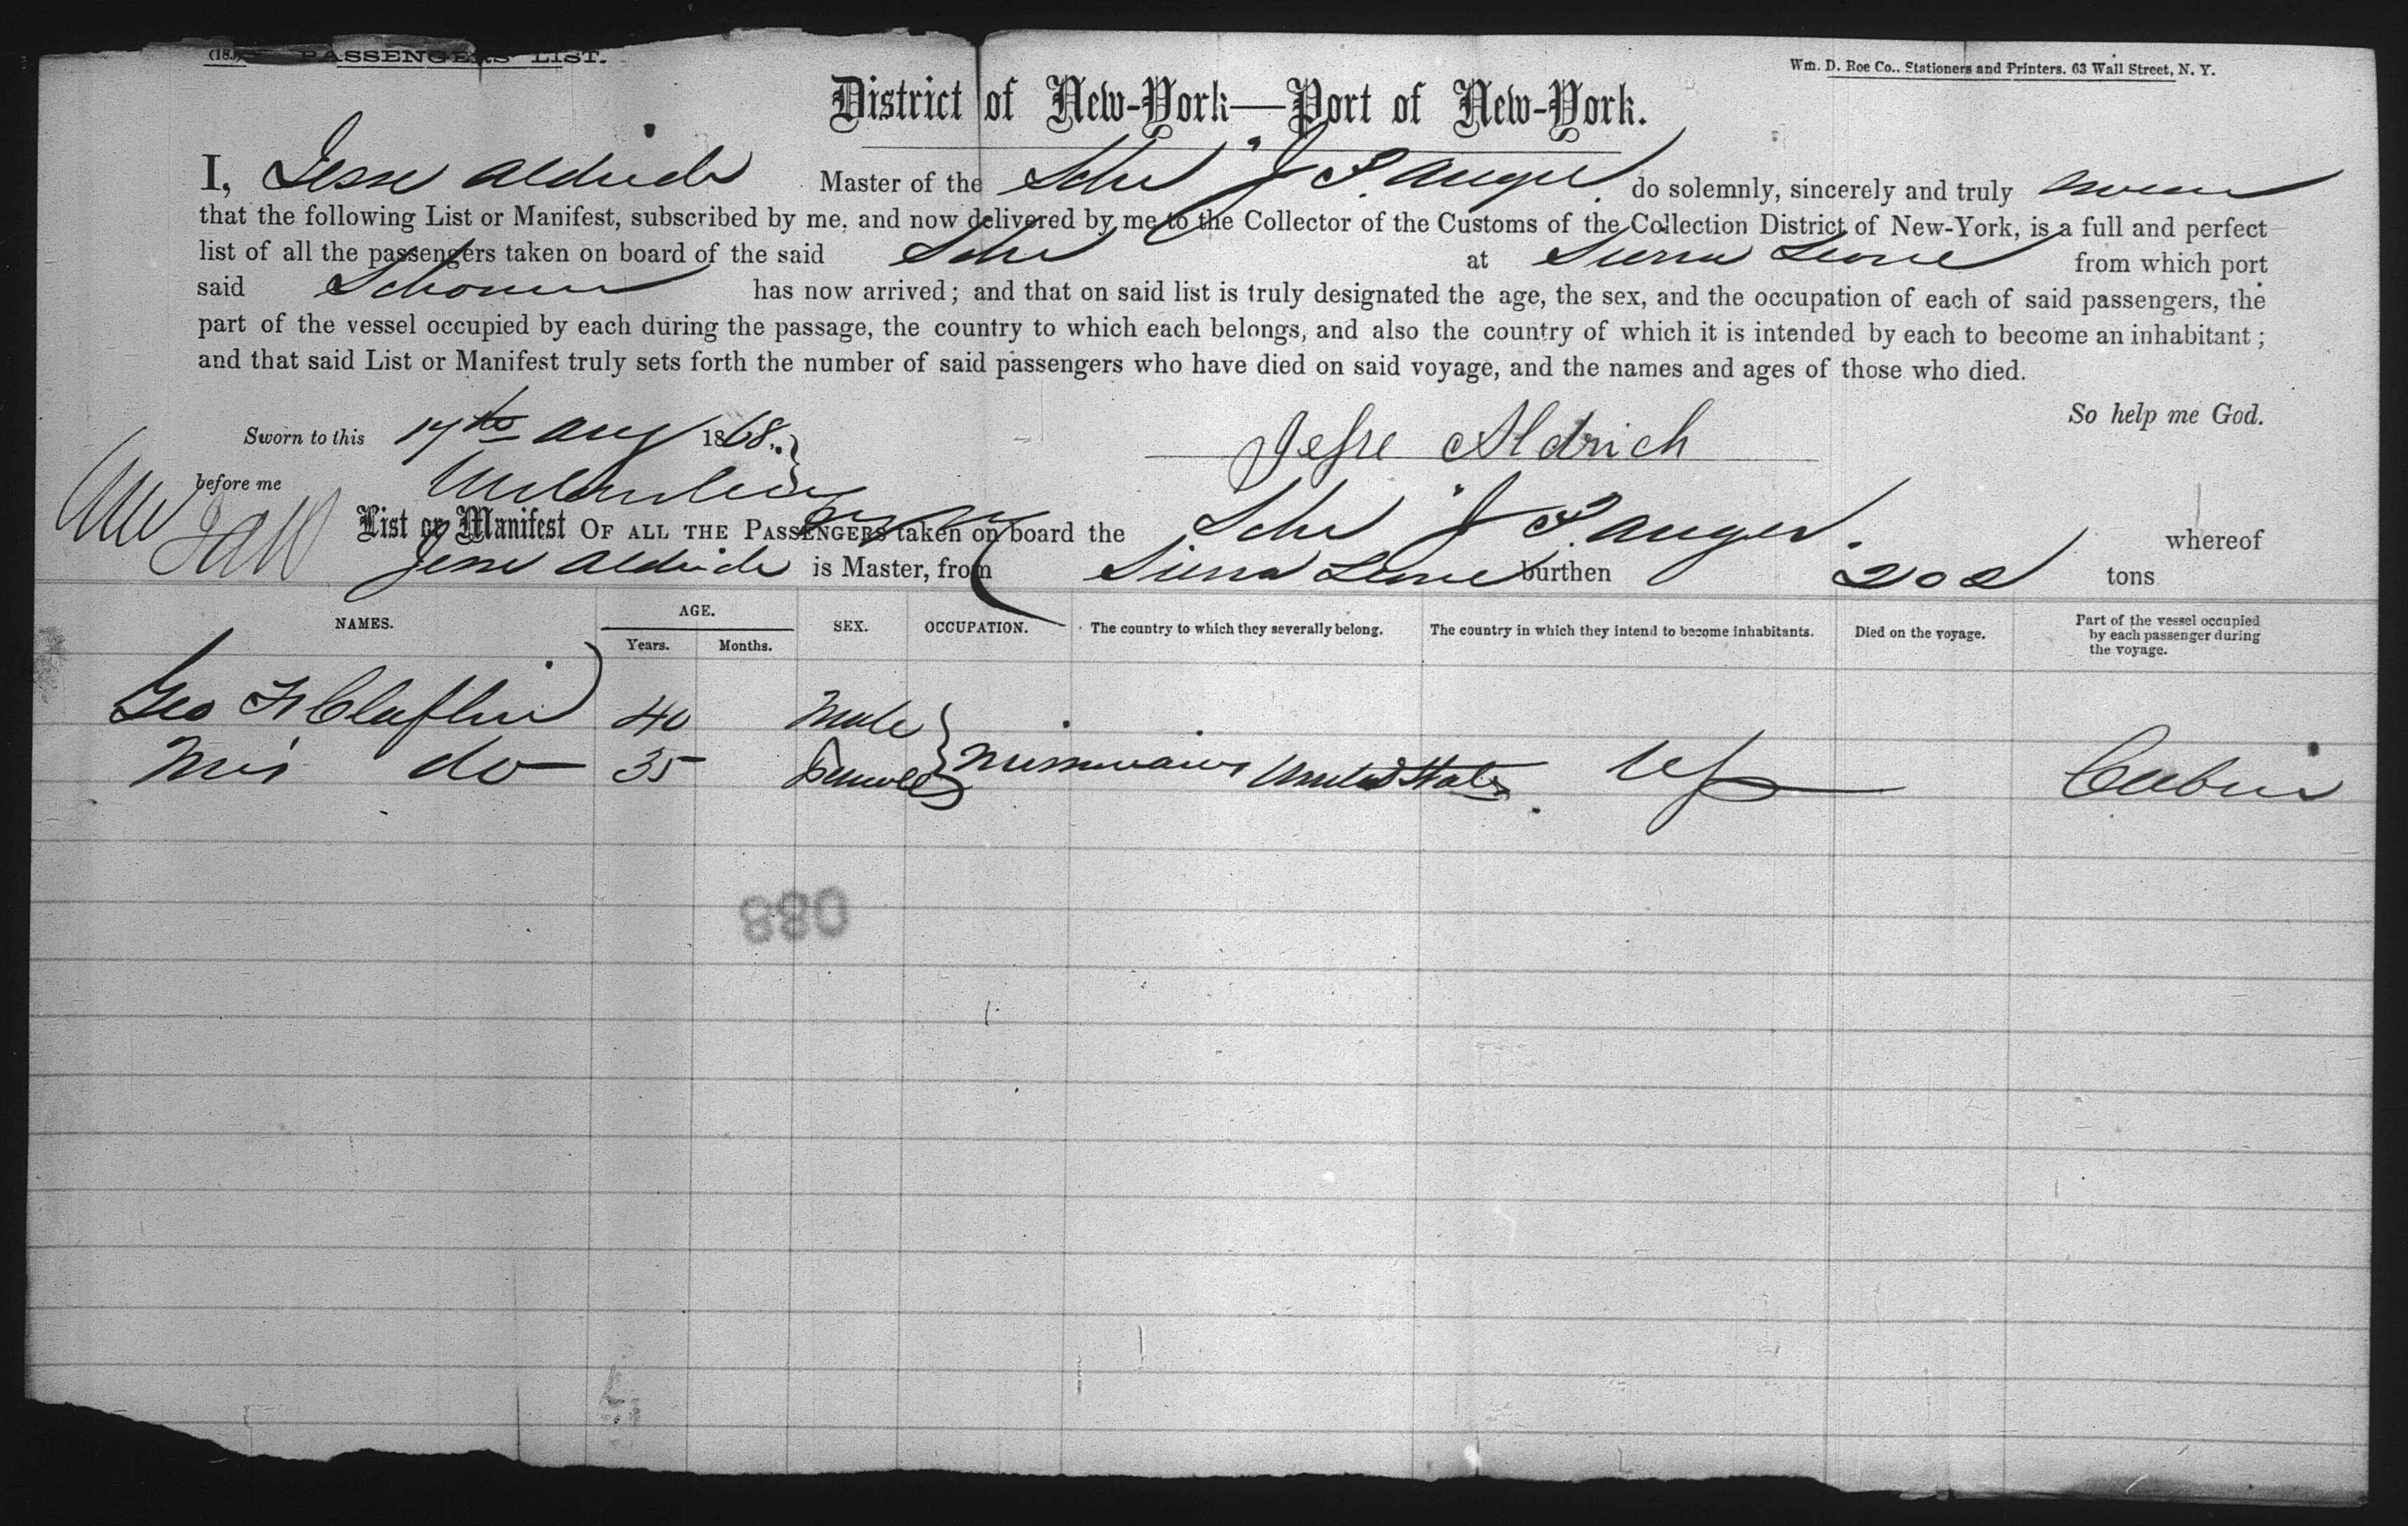 PASSENGERS LIST.
Wm. D. Roe Co., Stationers and Printers. 63 Wall Street, N. Y.
District of New-York—Port of New-York.
I, Jesse Aldrich Master of the Schr J P. Auger do solemnly, sincerely and truly swear
that the following List or Manifest, subscribed by me, and now delivered by me to the Collector of the Customs of the Collection District of New-York, is a full and perfect
list of all the passengers taken on board of the said Schr at Sierra Leone from which port
said Schooner has now arrived; and that on said list is truly designated the age, the sex, and the occupation of each of said passengers, the
part of the vessel occupied by each during the passage, the country to which each belongs, and also the country of which it is intended by each to become an inhabitant;
and that said List or Manifest truly sets forth the number of said passengers who have died on said voyage, and the names and ages of those who died.
So help me God.
Sworn to this 17th Aug 1868. Jesse Aldrich
before me
List or Manifest OF ALL THE PASSENGERS taken on board the Schr J P. Auger. whereof
Jesse Aldrich is Master, from Sierra Leone burthen 202 tons
NAMES. AGE. Years. Months. SEX. OCCUPATION. The country to which they severally belong. The country in which they intend to become inhabitants. Died on the voyage. Part of the vessel occupied by each passenger during the voyage.
Geo Claflin 40 Male
Mrs do 35 Female Missionaries United States US Cabin
088